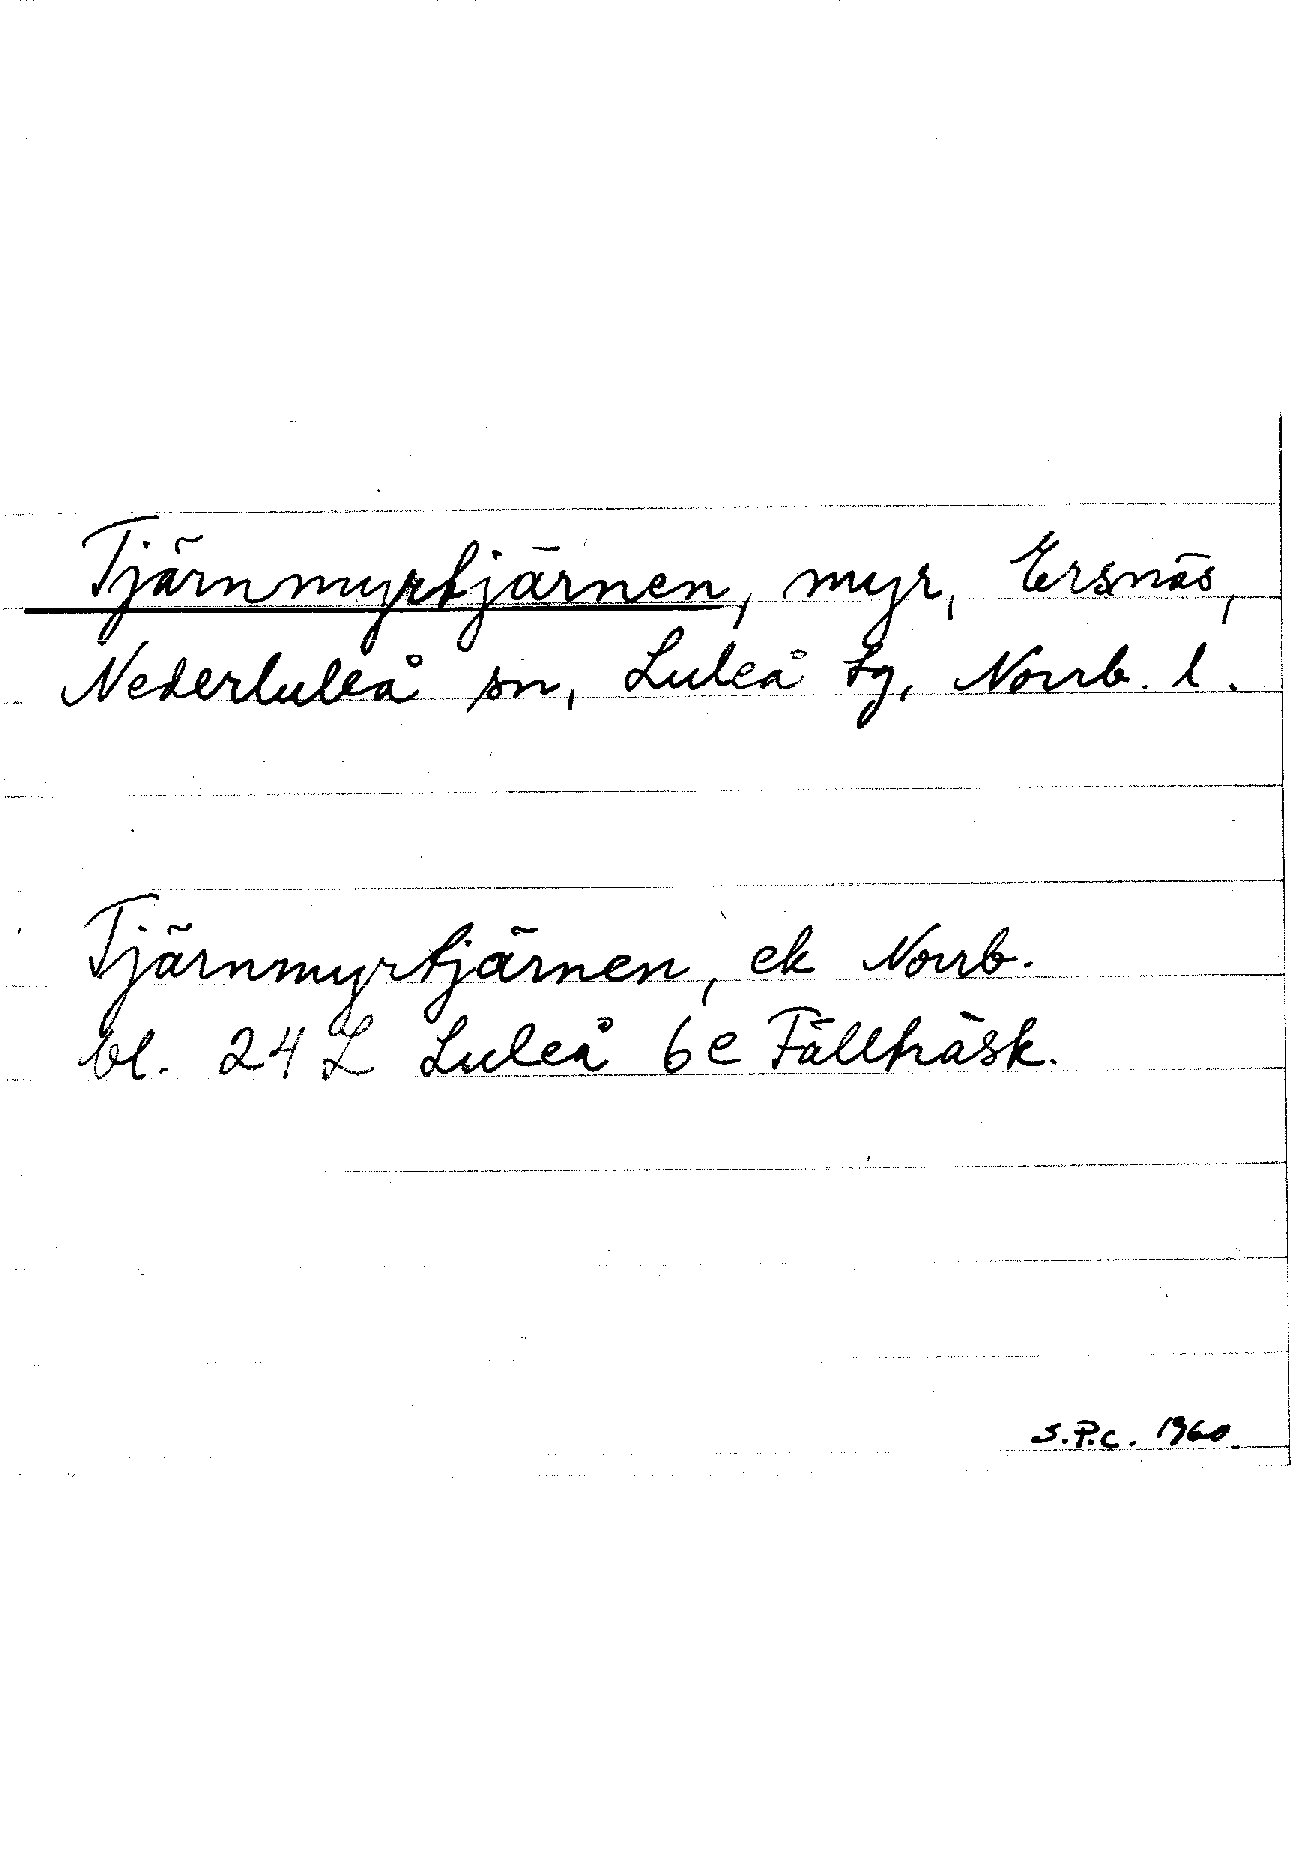 Tjärnmyrtjärnen, myr, Ersnäs,
Nederluleå sn, Luleå tg, Norrb. l.
Tjärnmyrtjärnen, ek Norrb.
bl. 24 L Luleå 6e Fällträsk.
S.P.C. 1960